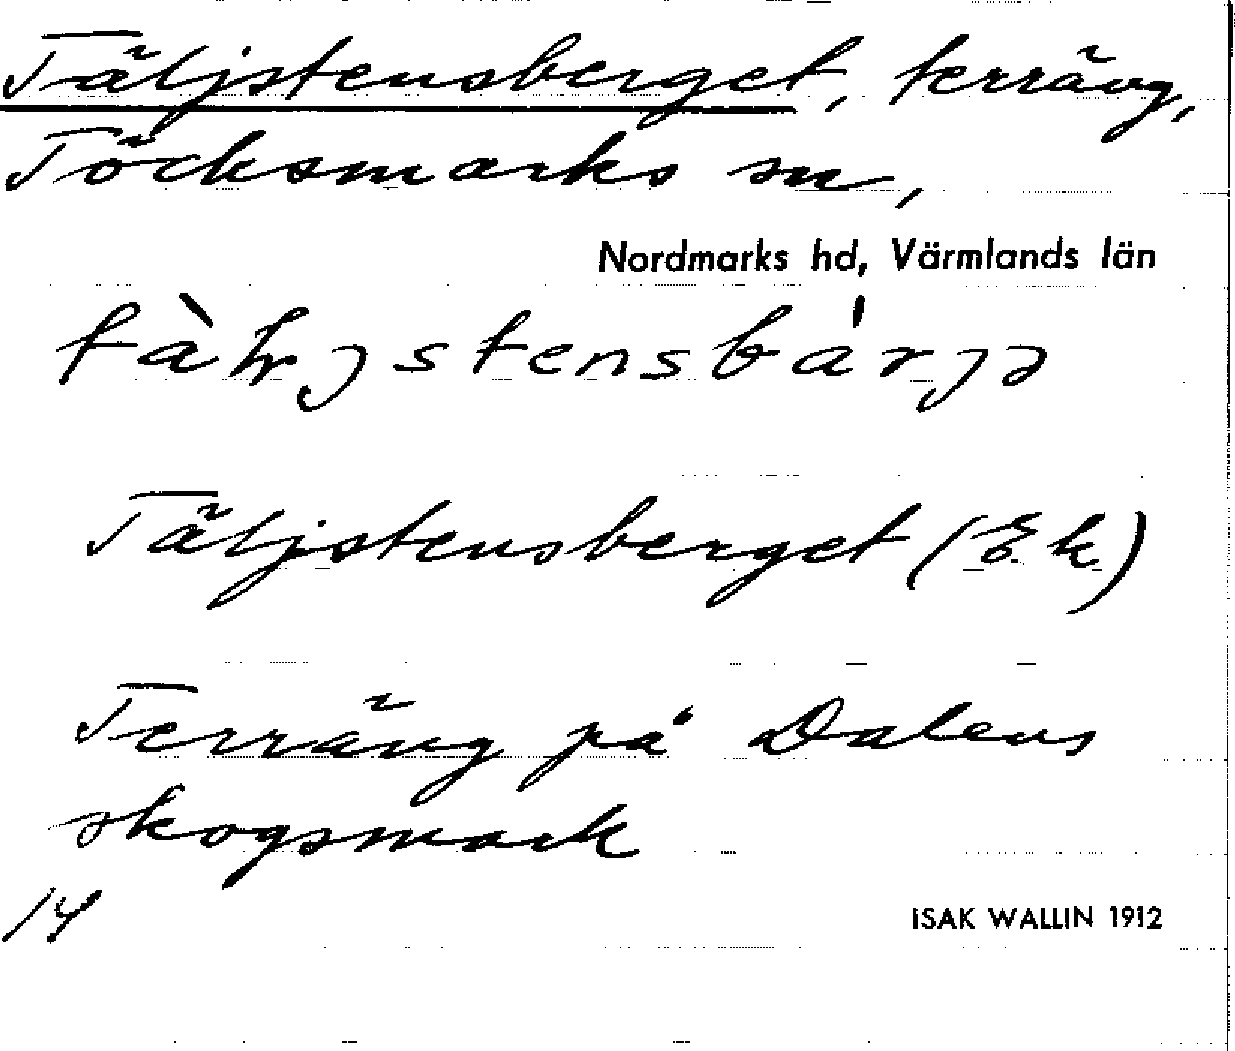 Täljstensberget, terräng,
Töcksmarks sn,
Nordmarks hd, Värmlands län
Täljstensberget (E.k)
Terräng på Dalens
skogsmark
14
ISAK WALLIN 1912